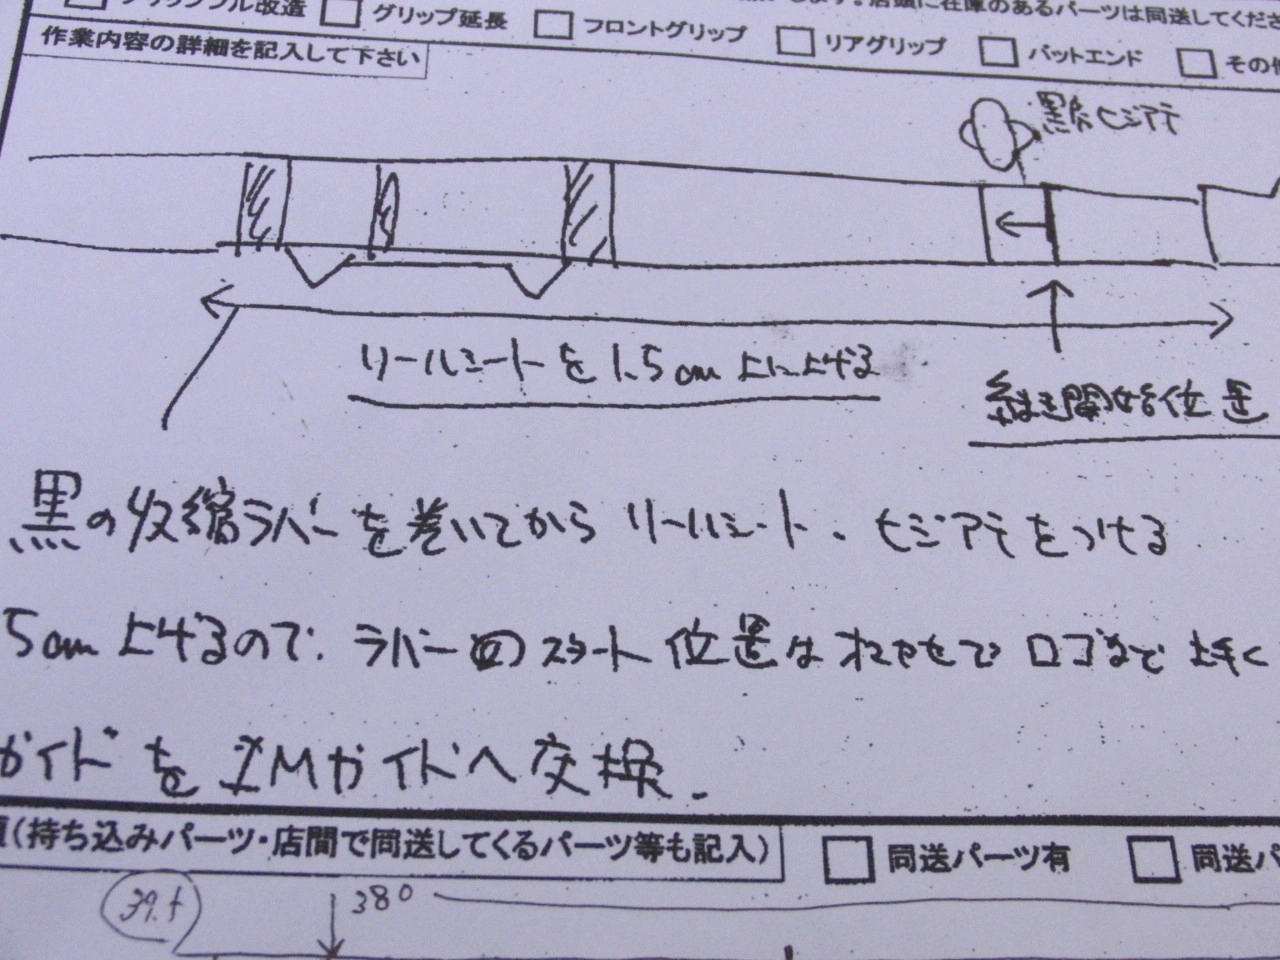 グリップル改造 □ グリップ延長 □ フロントグリップ □ リアグリップ □ バットエンド □ その他
します。店頭に在庫のあるパーツは同送してくださ
作業内容の詳細を記入して下さい
黒糸ヒシアテ
リールシートを1.5cm上に上げる
継ぎ開始位置
黒の収縮ラバーを巻いてからリールシート、ヒジアテをつける
5cm上げるので、ラバーのスタート位置は
ロゴまで
ガイドをIMガイドへ交換.
(持ち込みパーツ・店間で同送してくるパーツ等も記入)
□ 同送パーツ有 □ 同送パ
380